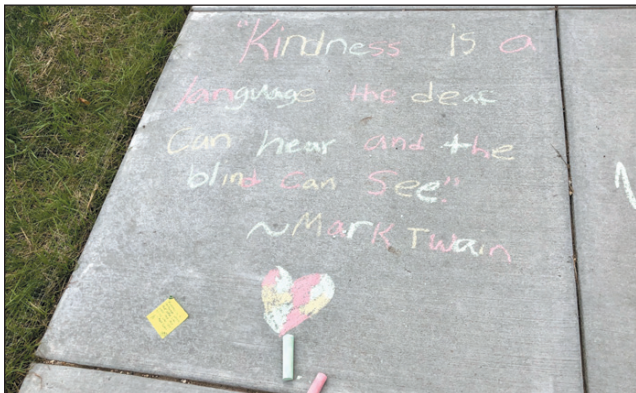 "Kindness is a
language the deaf
can hear and the
blind can see."
~Mark Twain